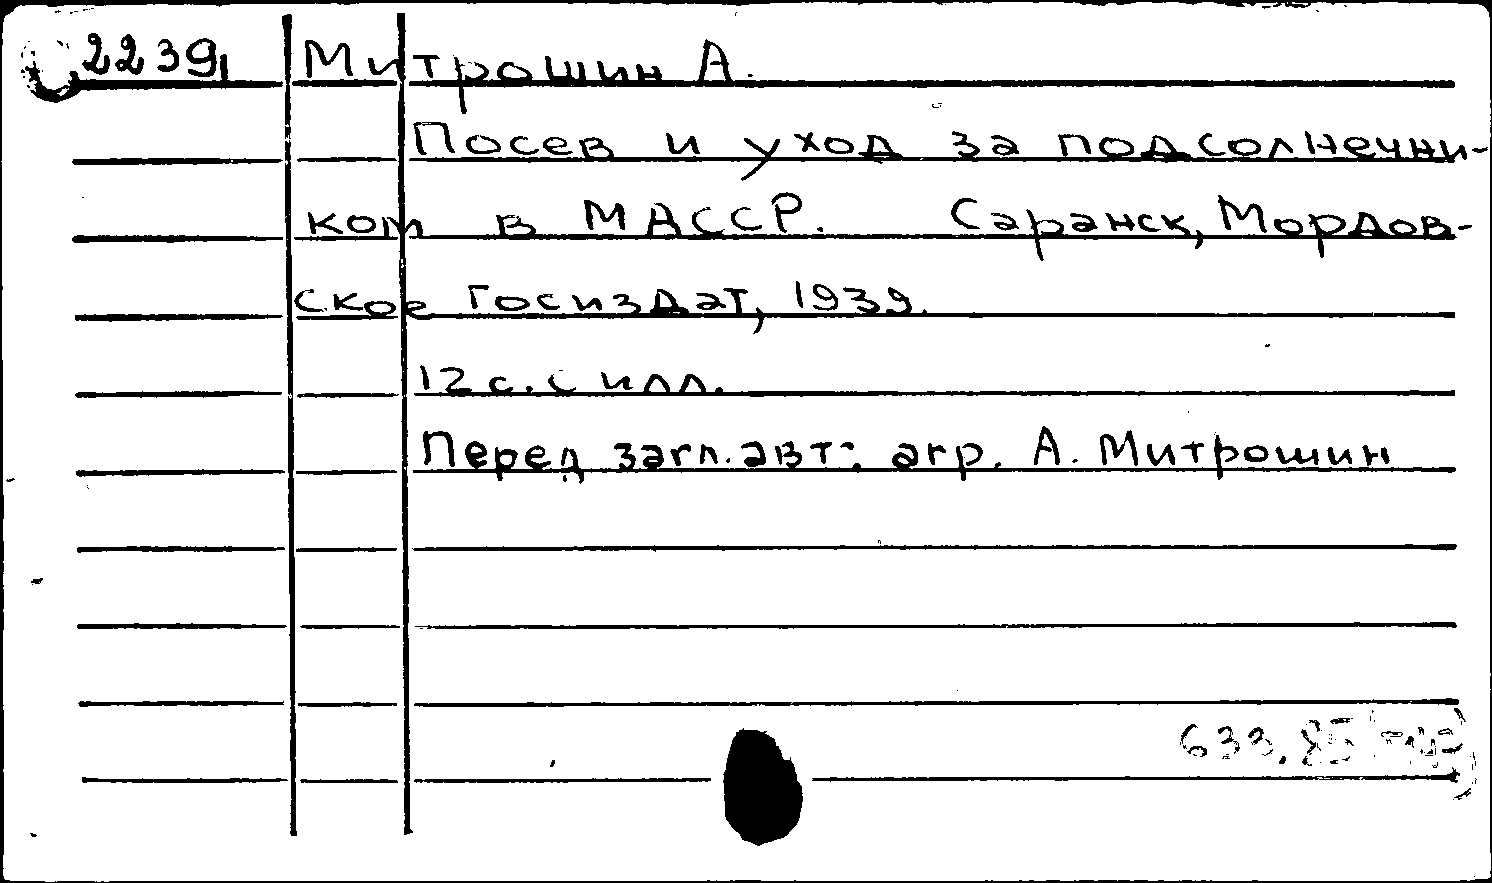 2239 Митрошин А.
Посев и уход за подсолнечни-
ком в МАССР. Саранск, Мордов-
ское Госиздат, 1939.
12 с. с илл.
Перед загл. авт.: агр. А. Митрошин
633.85